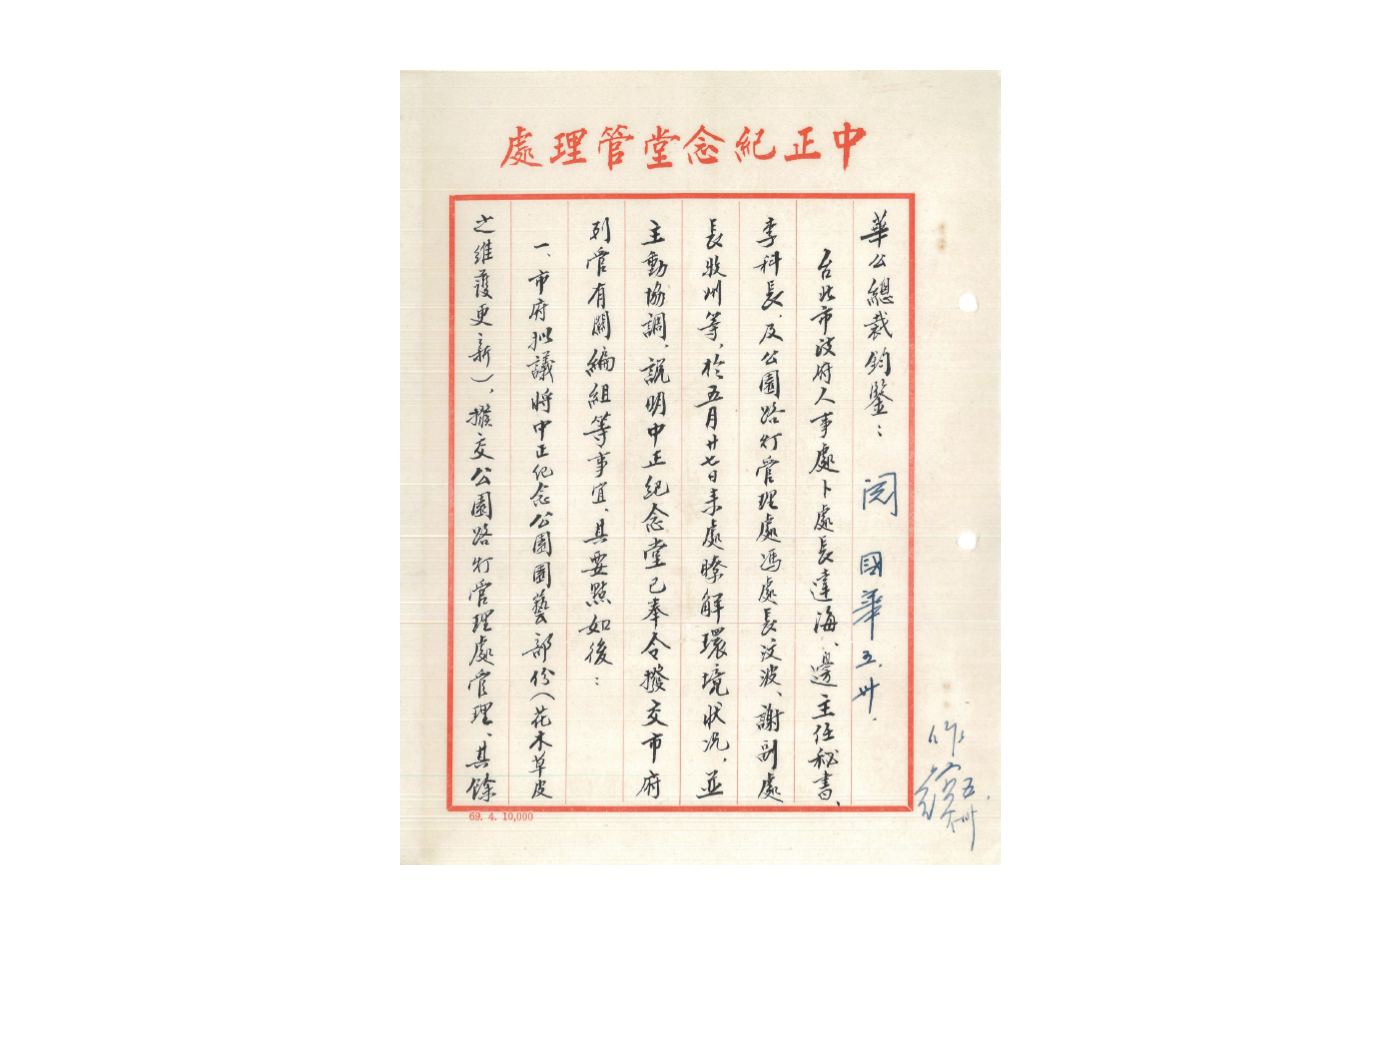 中正紀念堂管理處
華公總裁鈞鑒：
閱 國華 五.卅.
台北市政府人事處卜處長達海、邊主任秘書、
李科長、及公園路灯管理處馮處長汶波、謝副處
長牧州等，於五月廿七日来處瞭解環境狀况，並
主動協調、説明中正紀念堂已奉令撥交市府
列管有關編組等事宜、其要點如後：
一、市府拟議將中正紀念公園園藝部份（花木草皮
之維護更新），撥交公園路灯管理處管理、其餘
五.卅
69. 4. 10,000